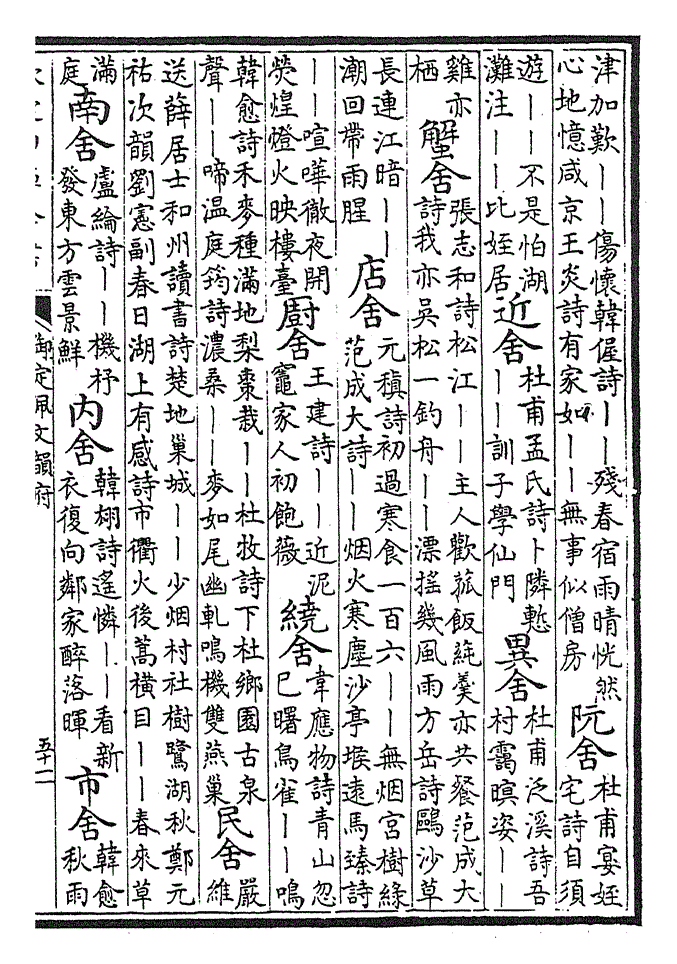 津加歎——傷懷韓偓詩——殘春宿雨晴恍然
心地憶咸京王炎詩有家如——無事似僧房
阮舍
杜甫宴姪
宅詩自須
遊——不是怕湖
灘注——比姪居
近舍
杜甫孟氏詩卜隣慙
——訓子學仙門
異舍
杜甫泛溪詩吾
村靄暝姿——
雞亦
栖
蟹舍
張志和詩松江——主人歡菰飯蓴羮亦共餐范成大
詩我亦吳松一釣舟——漂搖幾風雨方岳詩鷗沙草
長連江暗——
潮回帶雨腥
店舍
元稹詩初過寒食一百六——無烟宮樹綠
范成大詩——烟火寒塵沙亭堠遠馬臻詩
——喧嘩徹夜開
熒煌燈火映樓臺
廚舍
王建詩——近泥
竈家人初飽薇
繞舍
韋應物詩青山忽
已曙鳥雀——鳴
韓愈詩禾麥種滿地梨棗栽——杜牧詩下杜鄉園古泉
聲——啼温庭筠詩濃桑——麥如尾幽軋鳴機雙燕巢
民舍
嚴
維
送薛居士和州讀書詩楚地巢城——少烟村社樹鷺湖秋鄭元
祐次韻劉憲副春日湖上有感詩市衢火後蒿橫目——春來草
滿
庭
南舍
盧綸詩——機杼
發東方雲景鮮
內舍
韓翃詩遙憐——看新
衣復向鄰家醉落暉
市舍
韓愈
秋雨
御定佩文韻府
五十一